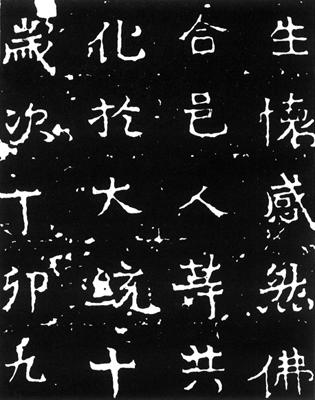 生懷感然佛
合邑人等共
化於大統十
歲次丁卯九